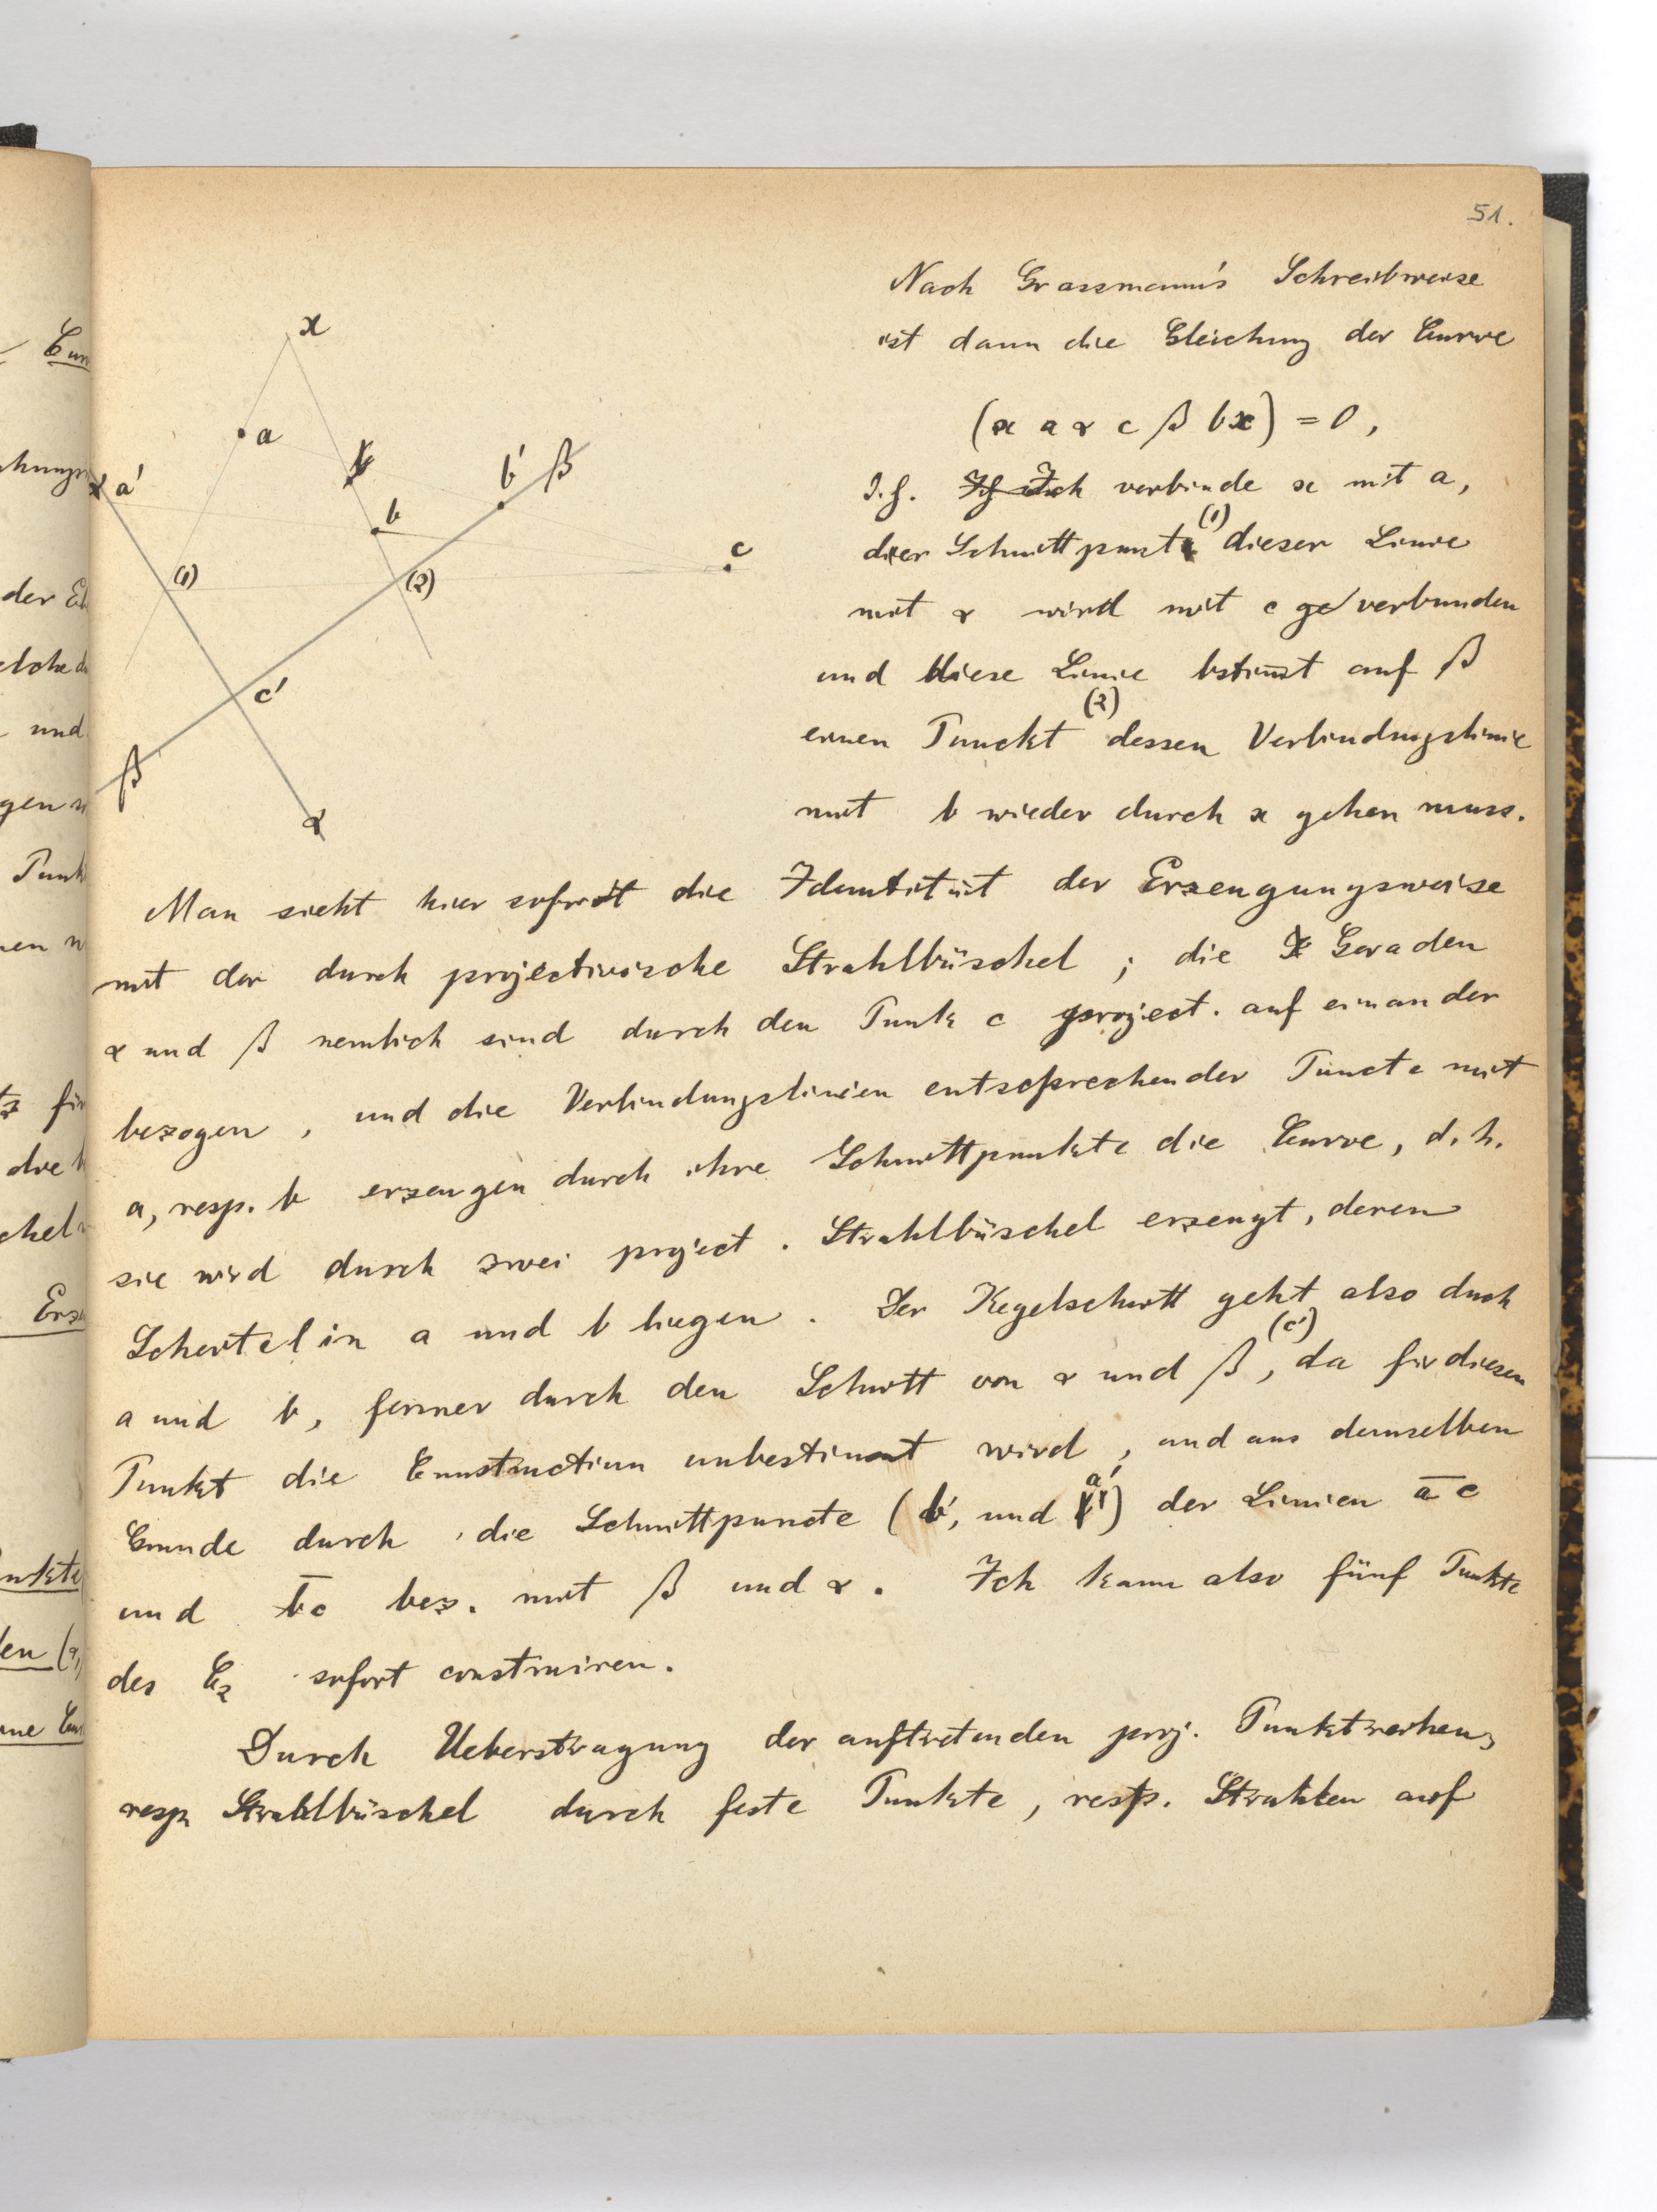 51.
Nach Grassmann's Schreibweise
ist dann die Gleichung der Curve
(x a α c β b x) = 0,
D.h. Ich verbinde x mit a,
der Schnittpunkt (1) dieser Linie
mit α wird mit c verbunden
und diese Linie bstim̄t auf β
einen Punckt (2) dessen Verbindungslinie
mit b wieder durch x gehen muss.
x
a
b
b'
β
α a'
b
c
(1)
(2)
c'
β
α
Man sieht hier sofort die Identität der Erzeugungsweise
mit der durch projectivische Strahlbüschel; die Geraden
α und β nemlich sind durch den Punk c project. auf einander
bezogen, und die Verbindungslinien entsprechender Puncte mit
a, resp. b erzeugen durch ihre Schnittpunkte die Curve, d.h.
sie wird durch zwei project. Strahlbüschel erzeugt, deren
Scheitel in a und b liegen. Der Kegelschnitt geht also durch
a und b, ferner durch den Schnitt von α und β (c'), da für diesen
Punkt die Construction unbestimmt wird, und aus demselben
Grunde durch die Schnittpuncte (b', und a') der Linien a̅c̅
und b̅c̅ bez. mit β und α. Ich kann also fünf Punkte
des C₂ sofort construiren.
Durch Ueberstragung der auftretenden proj. Punktreihen,
resp. Strahlbüschel durch feste Punkte, resp. Strahlen auf